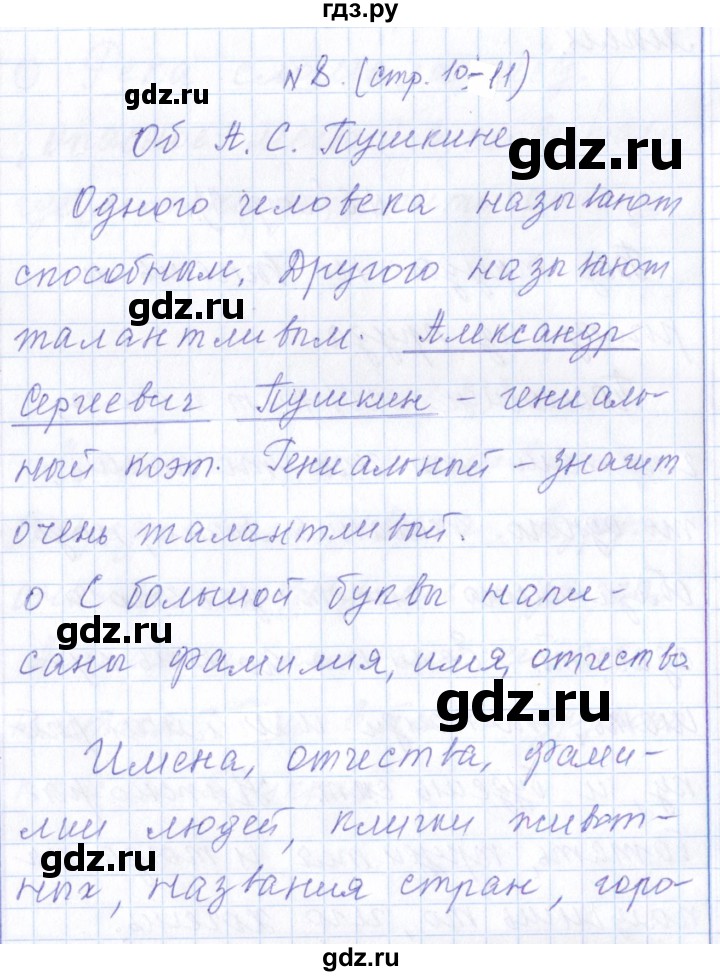 гдз.ру
N 8. (стр. 10-11)
gdz.ru
Об А. С. Пушкине
gdz.ru
Одного человека называют
способным. Другого называют
gdz.ru
талантливым. Александр
Сергеевич Пушкин – гениаль-
ный поэт. Гениальный – значит
gdz.ru
очень талантливый.
о С большой буквы напи-
gdz.ru
саны фамилия, имя, отчество
gdz.ru
Имена, отчества, фами-
лии людей, клички живот-
gdz.ru
ных, названия стран, горо-
gdz.ru